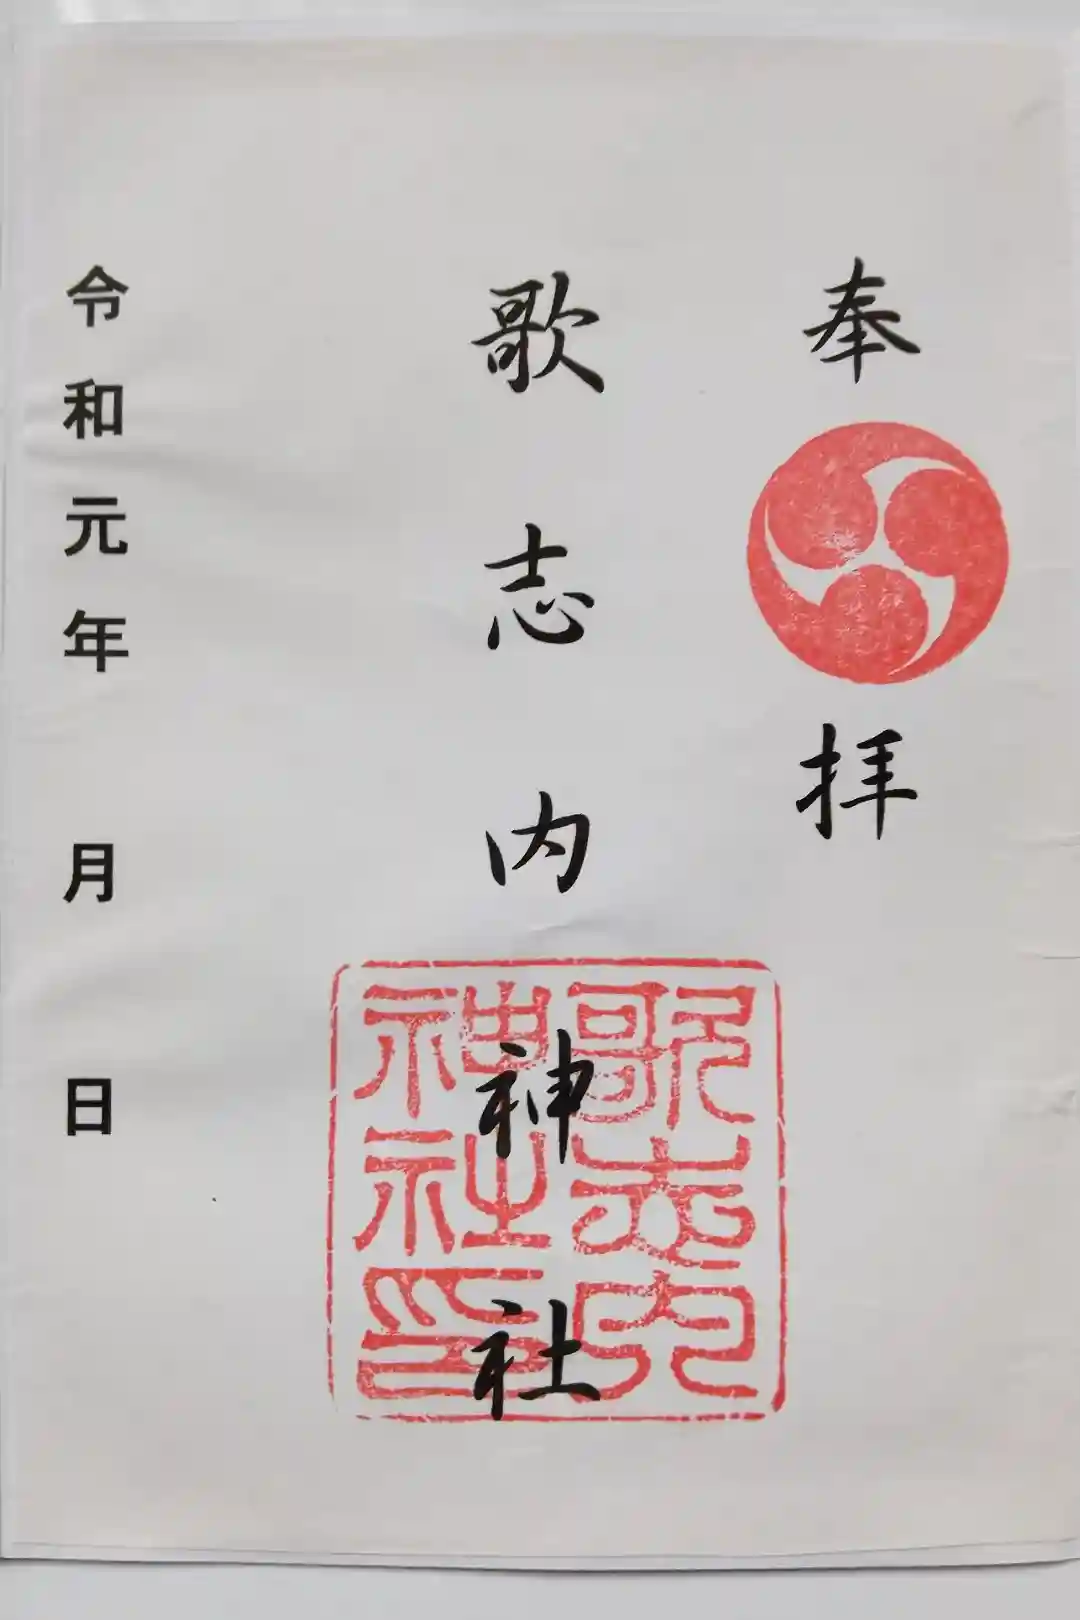 奉拝
歌志内神社
歌志内
神社印
令和元年 月 日